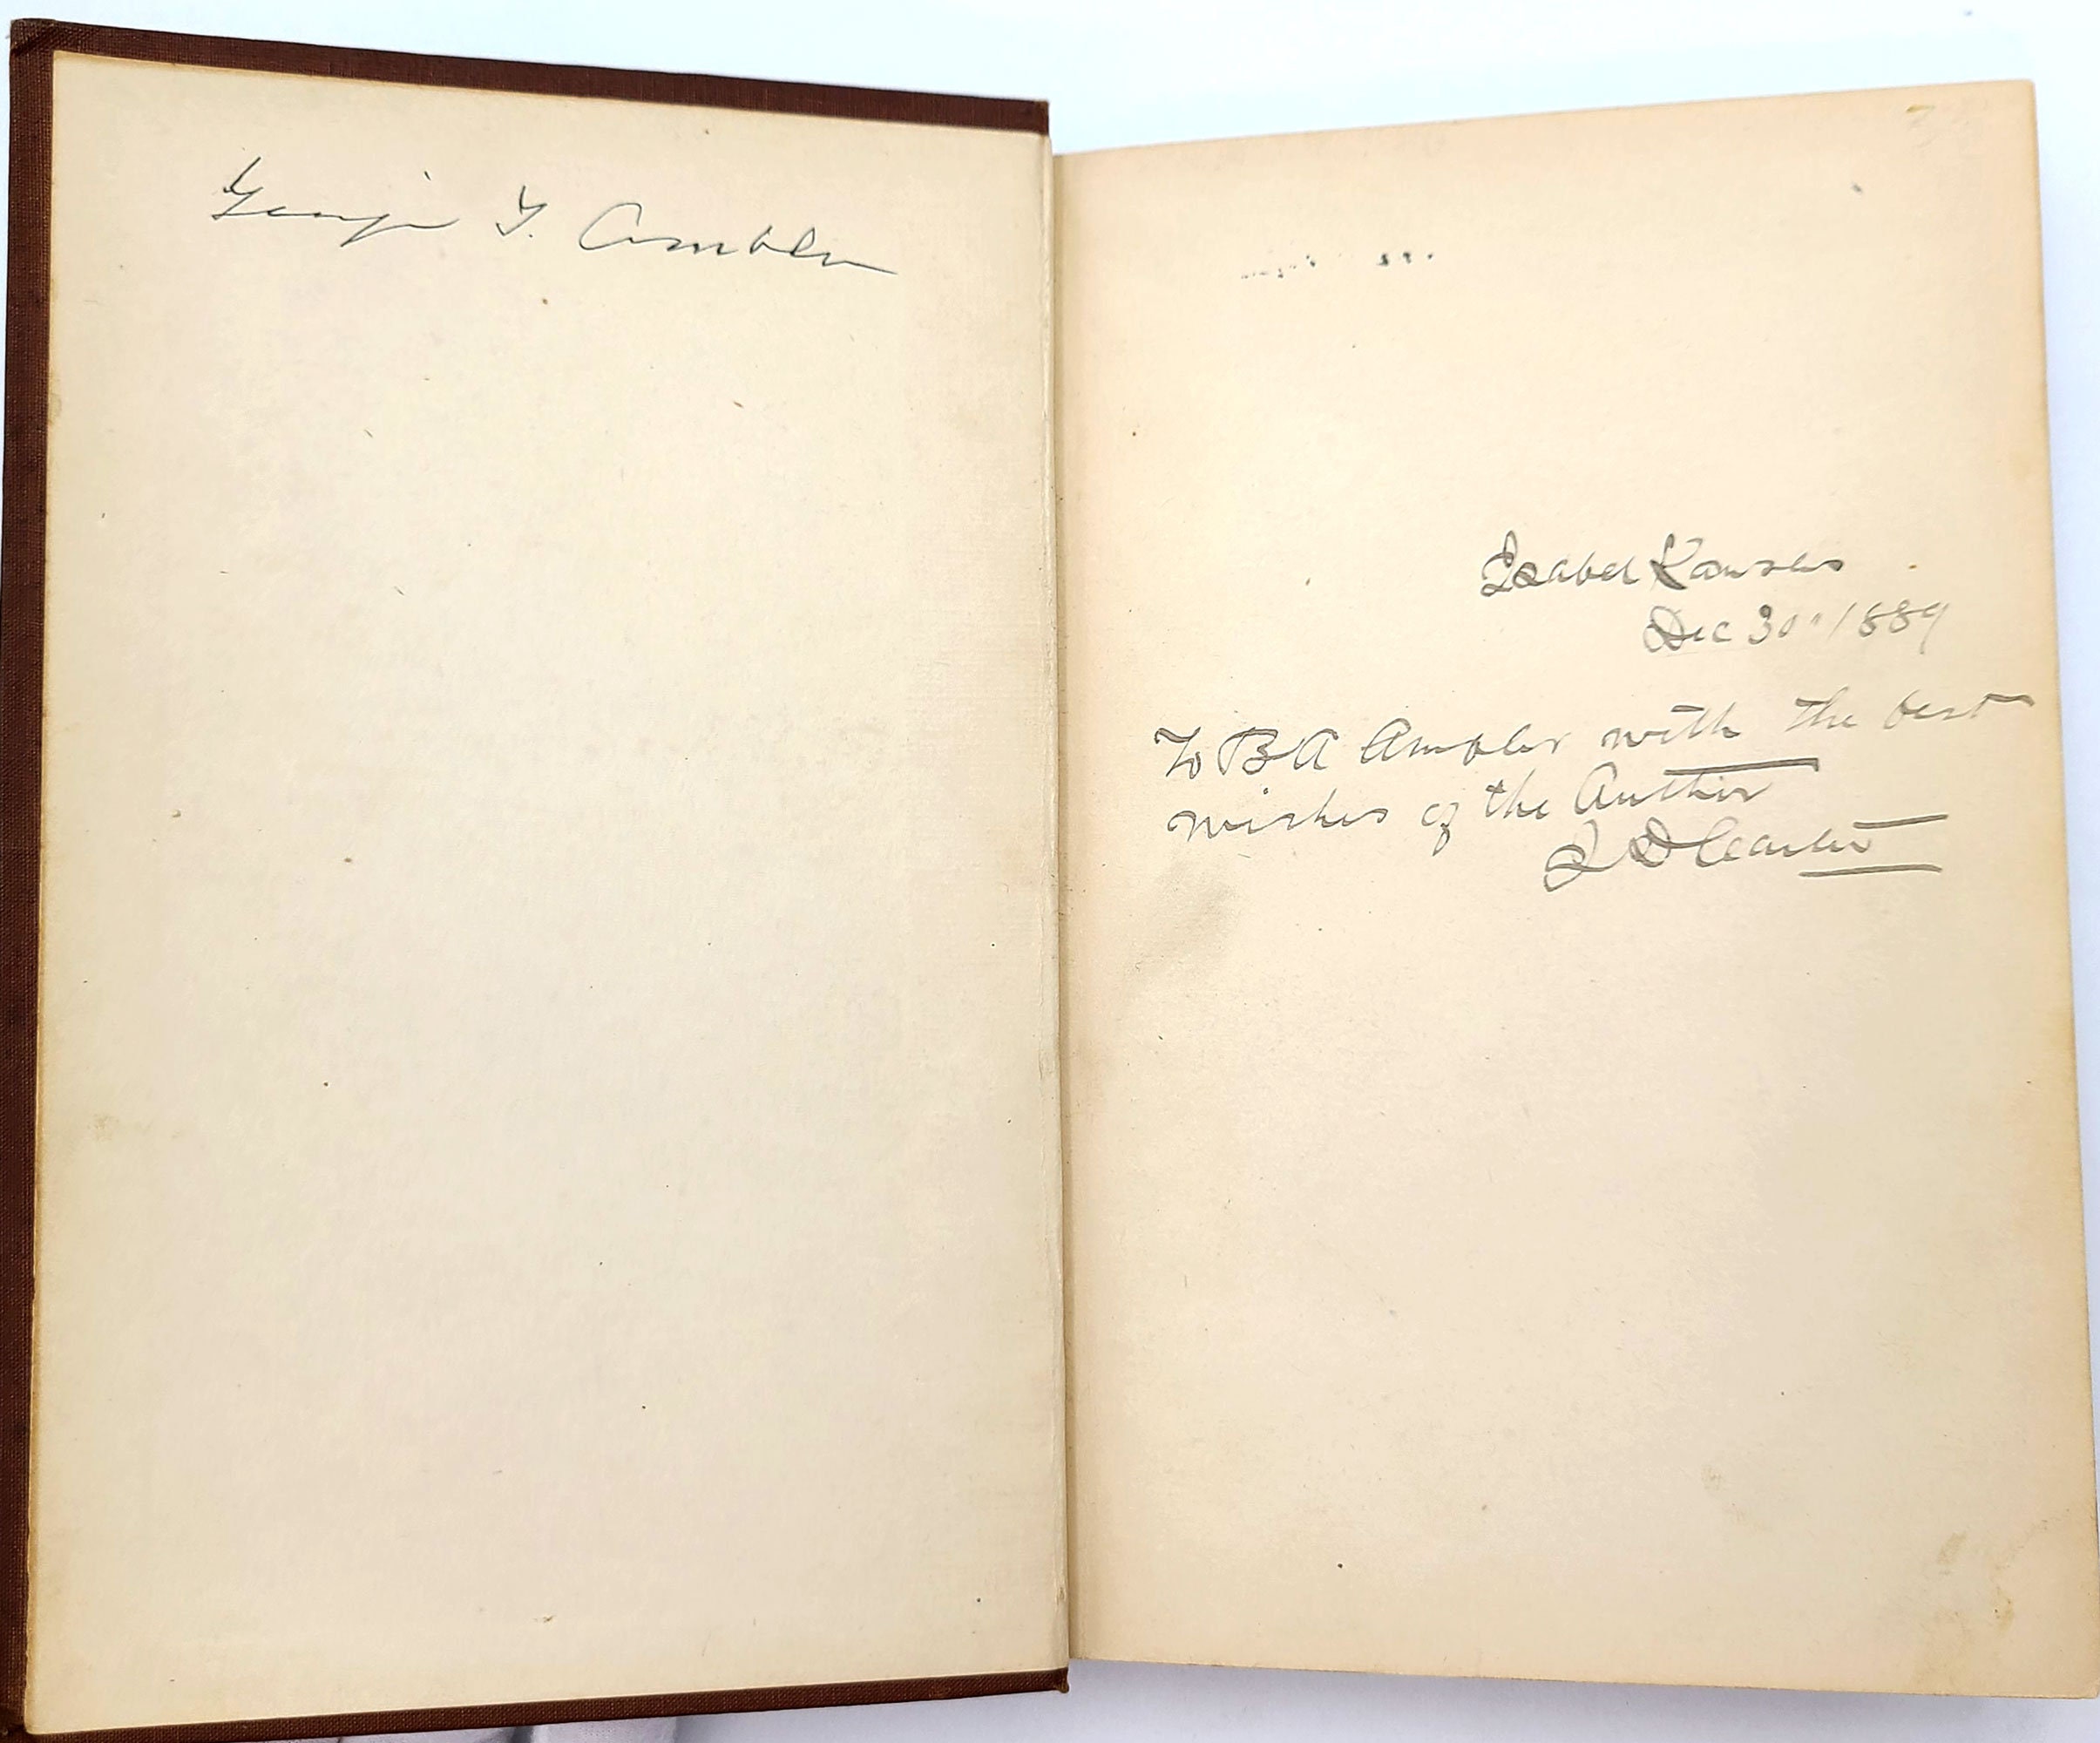 George Y. Ambler
Isabel Kansas
Dec 30" 1889
To BA Ambler with the best
wishes of the Author
J D Carter